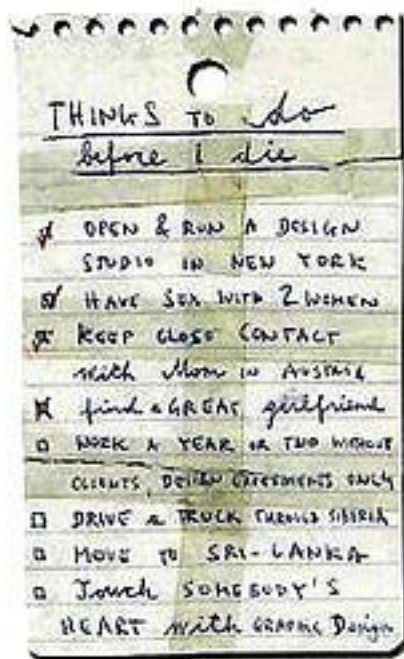 THINKS TO do
before I die
OPEN & RUN A DESIGN
STUDIO IN NEW YORK
HAVE SEX WITH 2 WOMEN
KEEP CLOSE CONTACT
with Mom in AUSTRIA
find a GREAT girlfriend
WORK A YEAR OR TWO WITHOUT
CLIENTS, DESIGN EXPERIMENTS ONLY
DRIVE a TRUCK THROUGH SIBERIA
MOVE TO SRI-LANKA
Touch SOMEBODY'S
HEART with GRAPHIC Design